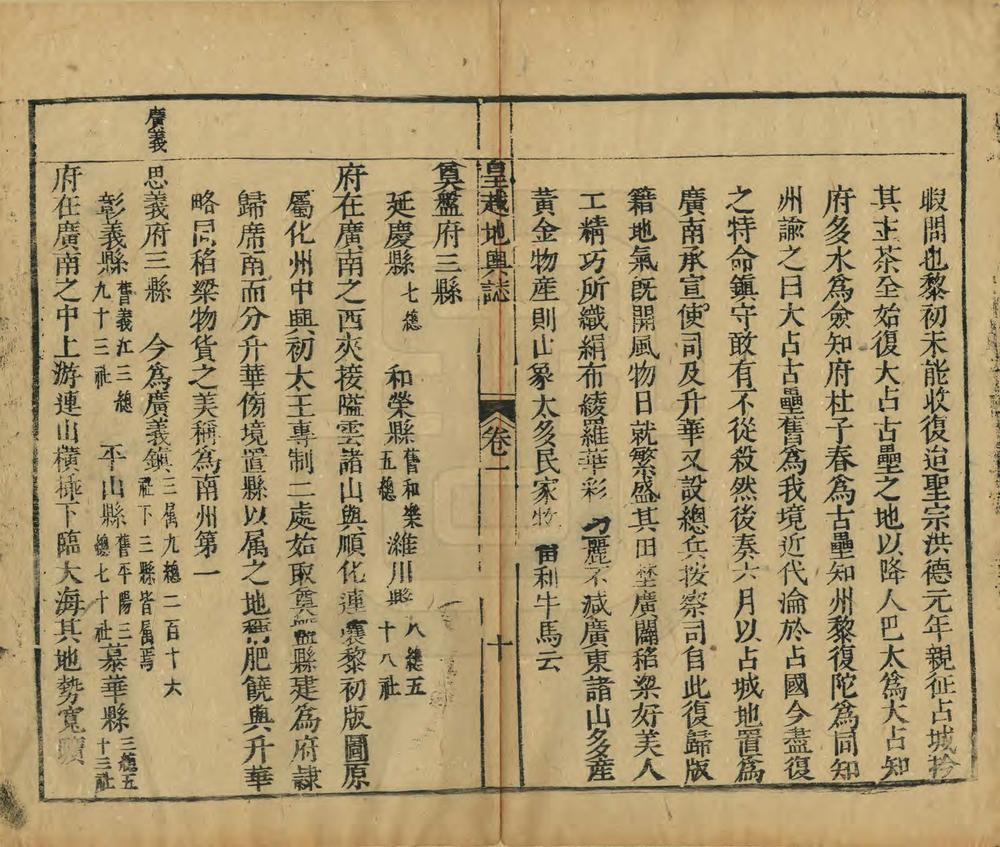 暇問也黎初未能收復迨聖宗洪德元年親征占城擒
其主茶全始復大占古壘之地以降人巴太爲大占知
府多水爲僉知府杜子春爲古壘知州黎復陀爲同知
州諭之曰大占古壘舊爲我境近代淪於占國今盡復
之特命鎭守敢有不從殺然後奏六月以占城地置爲
廣南承宣使司及升華又設總兵按察司自此復歸版
籍地氣旣開風物日就繁盛其田埜廣闊稻粱好美人
工精巧所織絹布綾羅華彩 麗不減廣東諸山多産
黃金物産則山象太多民家物 利牛馬云
皇越地輿誌 卷一 十
奠盤府三縣
延慶縣七總 和榮縣舊和樂五總 濰川縣八總五十八社
府在廣南之西夾接嗌雲諸山與順化連壤黎初版圖原
屬化州中興初太王專制二處始取奠盤縣建爲府隷
歸席南而分升華傍境置縣以属之地稱肥饒與升華
略同稻粱物貨之美稱爲南州第一
廣義
思義府三縣 今為廣義鎭三属九總二百十六社下三縣皆属焉
彰義縣舊義江三總九十三社 平山縣舊平陽三總七十社 慕華縣三總五十三社
府在廣南之中上游連山橫挿下臨大海其地势寬曠